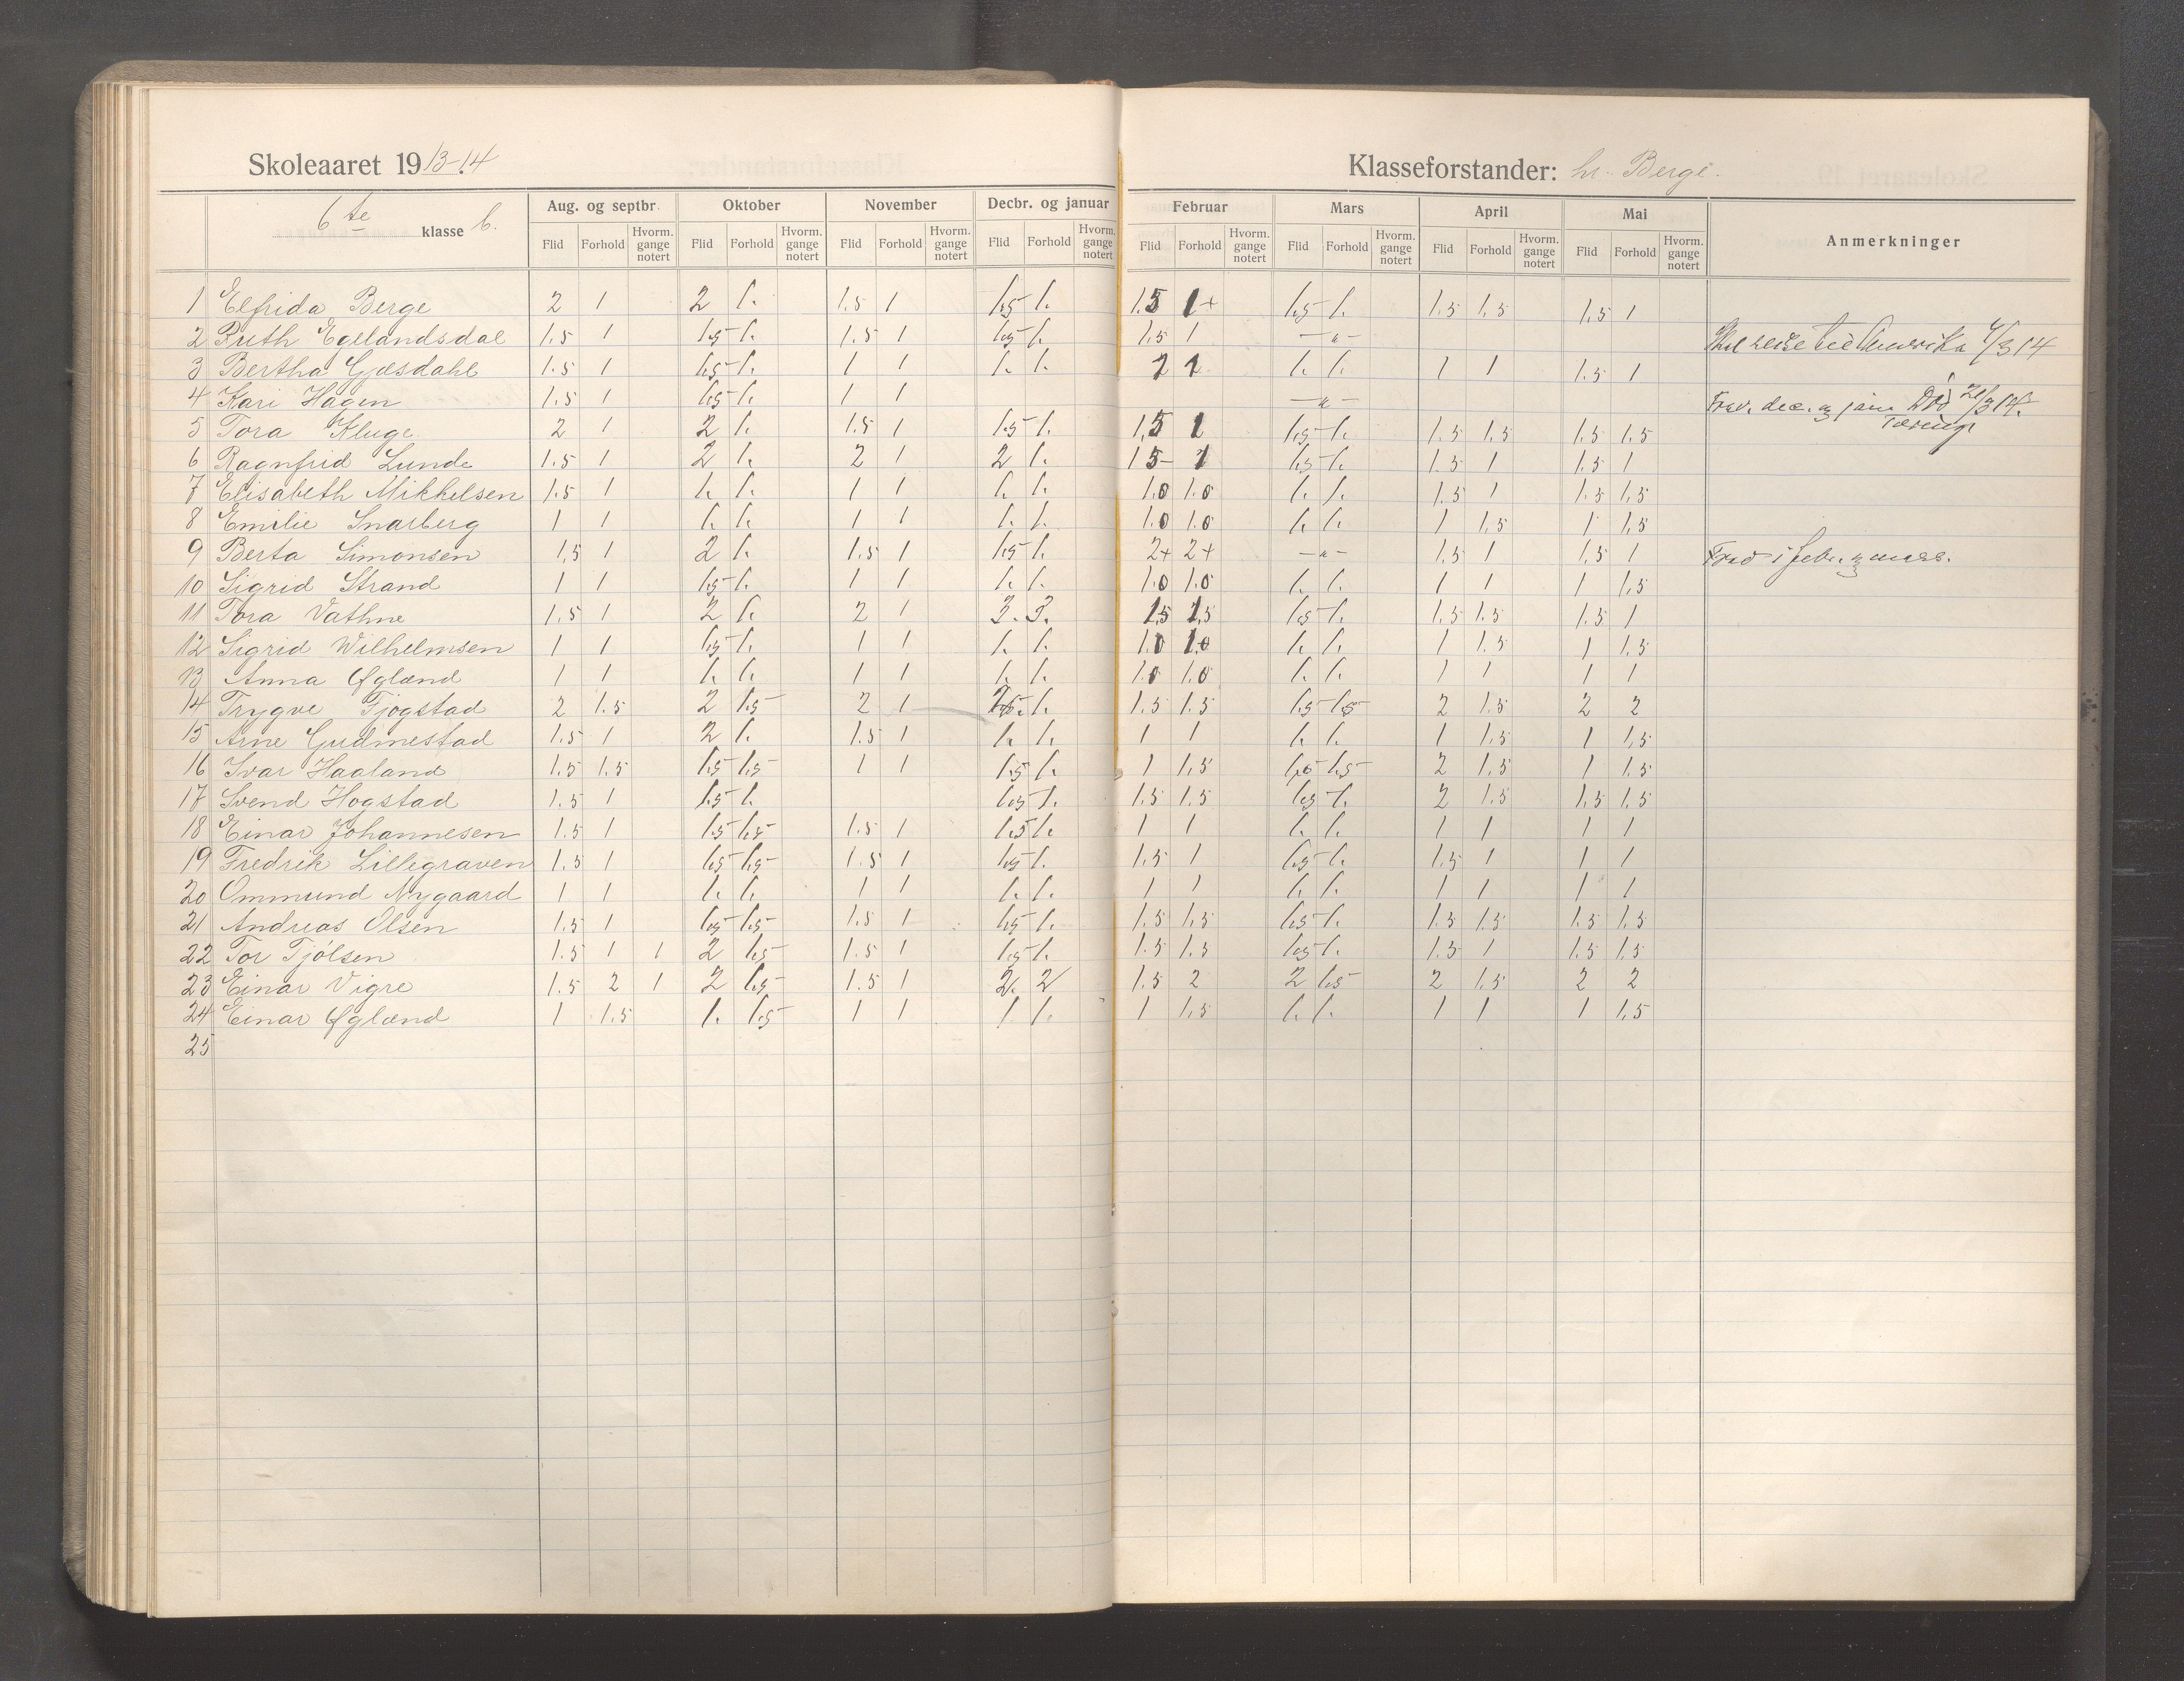 Skoleaaret 1913-14 Klasseforstander: hr. Berge.
6te klasse b. Aug. og septbr. Oktober November Decbr. og januar Februar Mars April Mai Anmerkninger
Flid Forhold Hvorm. gange notert Flid Forhold Hvorm. gange notert Flid Forhold Hvorm. gange notert Flid Forhold Hvorm. gange notert Flid Forhold Hvorm. gange notert Flid Forhold Hvorm. gange notert Flid Forhold Hvorm. gange notert Flid Forhold Hvorm. gange notert
1 Elfrida Berge 2 1 2 1. 1.5 1 1.5 1. 1.5 1+ 1.5 1. 1.5 1.5 1.5 1
2 Ruth Egelandsdal 1.5 1 1.5 1. 1.5 1 1.5 1. 1.5 1 —"— reise til Amerika 4/3 14
3 Bertha Gjesdahl 1.5 1 1.5 1. 1 1 1. 1. 2 1 1. 1. 1 1 1.5 1
4 Kari Hagen 1.5 1 1.5 1. 1 1 —"— Frav. dec. og jan. Död 21/3 14.
5 Tora Kluge 2 1 2 1. 1.5 1 1.5 1. 1,5 1 1.5 1. 1.5 1.5 1.5 1.5 Tæring
6 Ragnfrid Lunde 1.5 1 2 1. 2 1 2 1. 1 5- 1 1.5 1. 1.5 1 1.5 1
7 Elisabeth Mikkelsen 1.5 1 1. 1. 1 1 1. 1. 1.0 1.0 1. 1. 1.5 1 1.5 1.5
8 Emilie Snarberg 1 1 1. 1. 1 1 1. 1. 1.0 1.0 1. 1. 1 1.5 1 1.5
9 Berta Simonsen 1,5 1 2 1. 1.5 1 1.5 1. 2+ 2+ —"— 1,5 1 1,5 1 Frav. i febr. og mars.
10 Sigrid Strand 1 1 1.5 1. 1 1 1. 1. 1.0 1.0 1. 1. 1 1 1 1,5
11 Tora Vathne 1.5 1 2 1. 2 1 3. 3. 1,5 1,5 1.5 1. 1.5 1.5 1.5 1
12 Sigrid Wilhelmsen 1 1 1.5 1. 1 1 1. 1. 1.0 1.0 1. 1. 1 1.5 1 1.5
13 Anna Øglænd 1 1 1. 1. 1 1 1. 1. 1.0 1.0 1. 1. 1 1 1 1
14 Trygve Fjogstad 2 1.5 2 1.5 2 1 1. 1.5 1.5 1.5 1.5 2 1.5 2 2
15 Arne Gudmestad 1.5 1 2 1. 1.5 1 1. 1. 1 1 1. 1. 1 1.5 1 1,5
16 Ivar Haaland 1.5 1.5 1.5 1.5 1 1 1.5 1. 1 1,5 1.5 1.5 2 1.5 1 1.5
17 Svend Hogstad 1.5 1 1.5 1. 1.5 1. 1.5 1.5 1.5 1. 2 1.5 1.5 1.5
18 Einar Johannesen 1.5 1 1.5 1.5 1.5 1 1.5 1. 1 1 1. 1. 1 1 1 1
19 Fredrik Lillegraven 1.5 1 1.5 1.5 1.5 1 1.5 1. 1.5 1 1.5 1. 1.5 1 1 1
20 Ommund Nygaard 1 1 1. 1. 1 1 1. 1. 1 1 1. 1. 1 1 1 1
21 Andreas Olsen 1.5 1 1.5 1.5 1.5 1 1.5 1. 1.5 1,5 1.5 1. 1.5 1.5 1.5 1.5
22 Tor Tjölsen 1.5 1 1 2 1.5 1.5 1 1.5 1. 1.5 1.5 1.5 1. 1.5 1 1.5 1,5
23 Einar Vigre 1.5 2 1 2 1.5 1.5 1 2. 2 1.5 2 2 1.5 2 1.5 2 2
24 Einar Øglænd 1 1.5 1. 1.5 1 1 1 1. 1 1,5 1. 1. 1 1 1 1.5
25